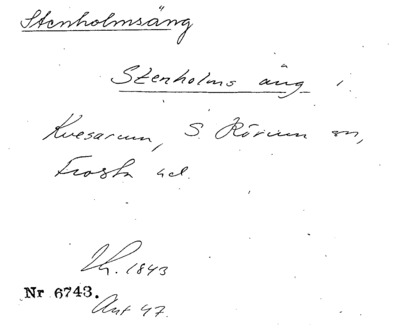 Stenholmsäng
Stenholms äng i
Kvesarum, S. Rörum sn,
Frosta hd.
1843
Nr 6743.
Avt 47.